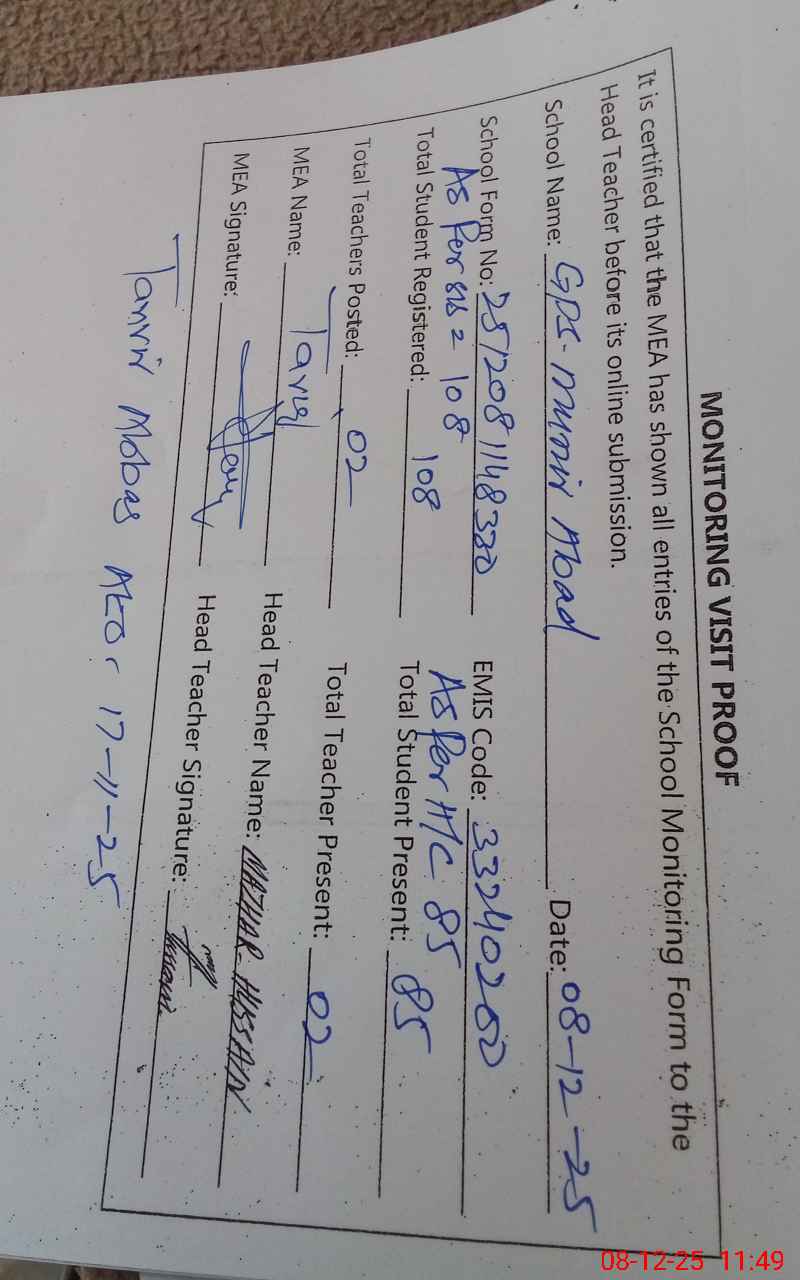 MONITORING VISIT PROOF
It is certified that the MEA has shown all entries of the School Monitoring Form to the
Head Teacher before its online submission.
School Name: GPS. Munir Abad Date: 08-12-25
School Form No: 251208 1148330 EMIS Code: 33240200
As Per sis = 108 As Per H/C 85
Total Student Registered: 108 Total Student Present: 85
Total Teachers Posted: 02 Total Teacher Present: 02
MEA Name: Tariq Head Teacher Name: MAZHAR HUSSAIN
MEA Signature: Head Teacher Signature:
17-11-25
08-12-25 11:49